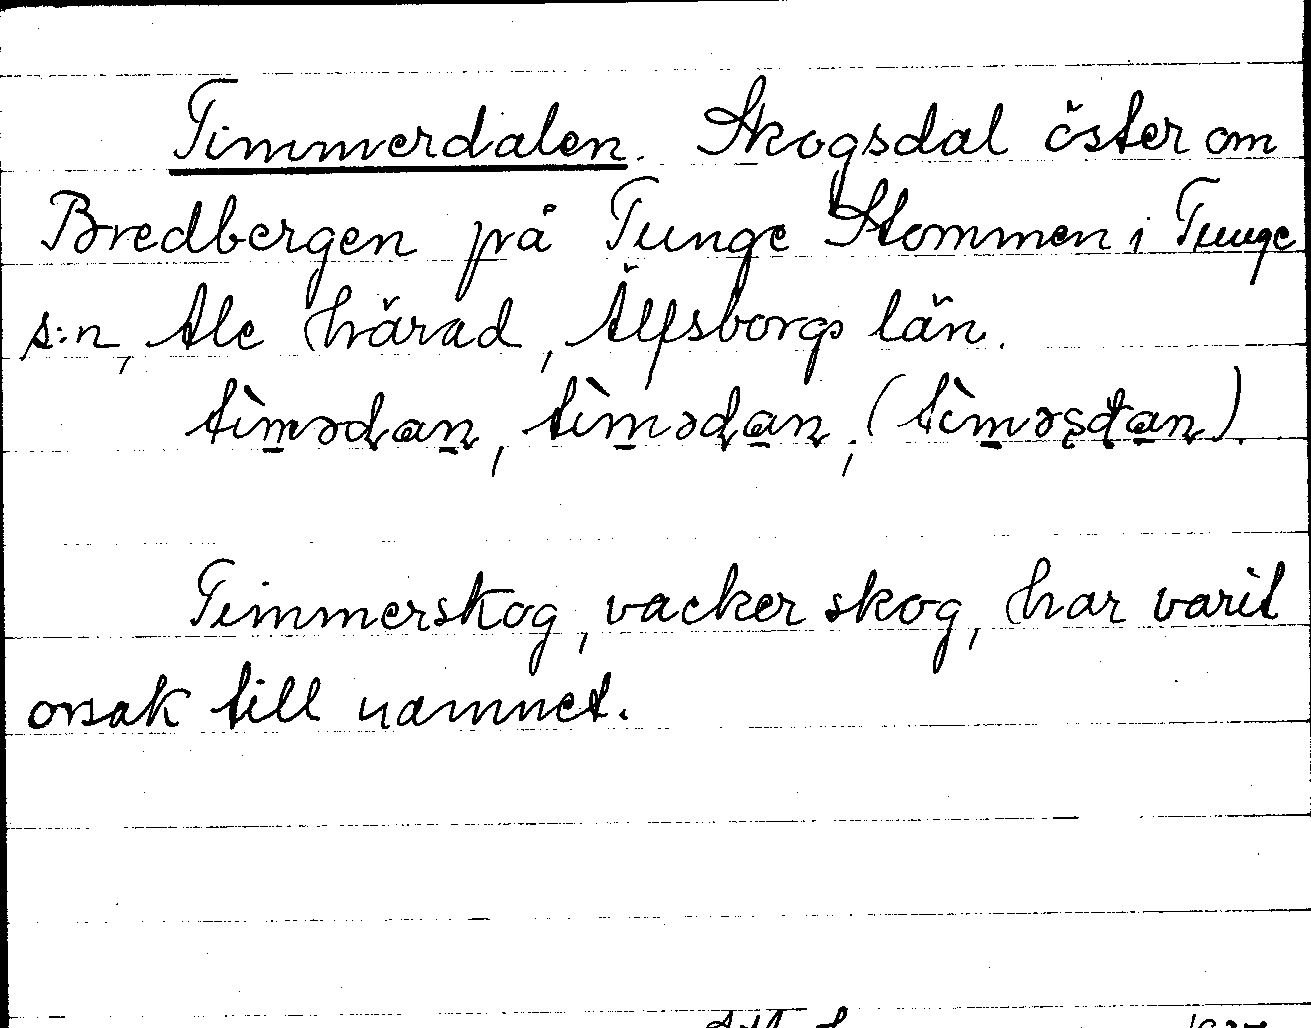 Timmerdalen. Skogsdal öster om
Bredbergen på Tunge Stommen i Tunge
s:n, Ale härad, Älfsborgs län.
tìmədan, tìmədan, (tìməsdan).
Timmerskog, vacker skog, har varit
orsak till namnet.